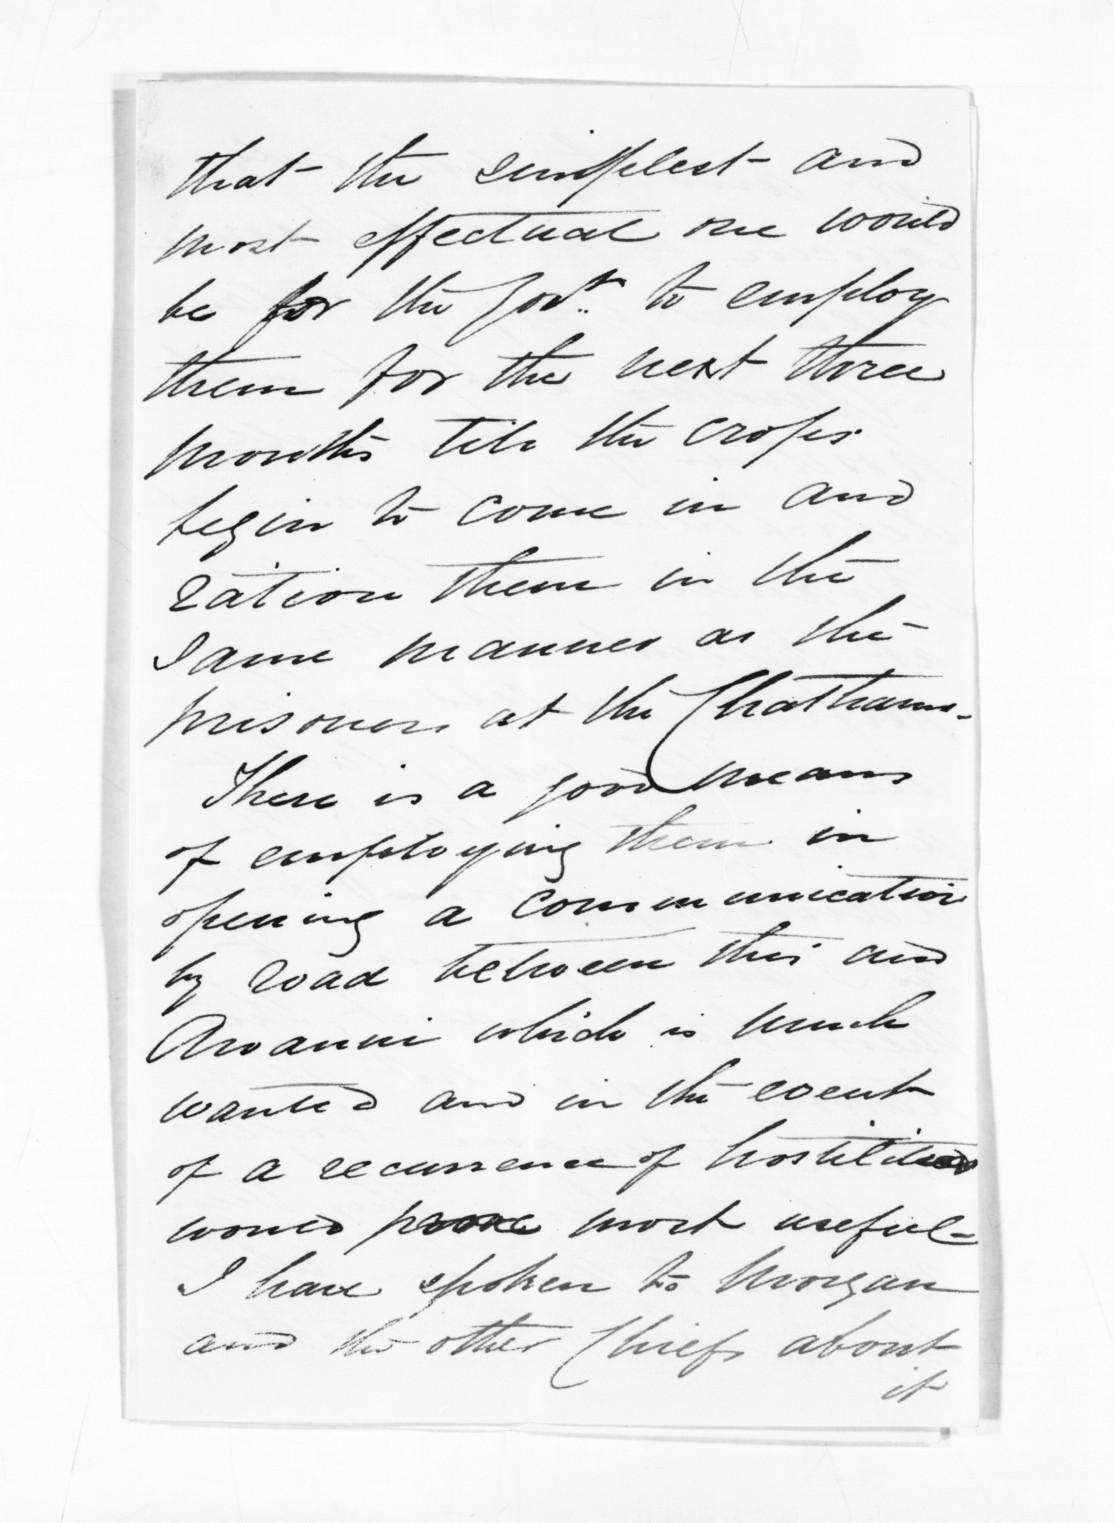 that the simplest and
most effectual one would
be for the Govt. to employ
them for the next three
months till the crops
begin to come in and
ration them in the
same manner as the
prisoners at the Chathams.
There is a good means
of employing them in
opening a communication
by road between this and
Awanui which is much
wanted and in the event
of a recurrence of hostilities
would prove most useful -
I have spoken to Morgan
and the other Chiefs about
it